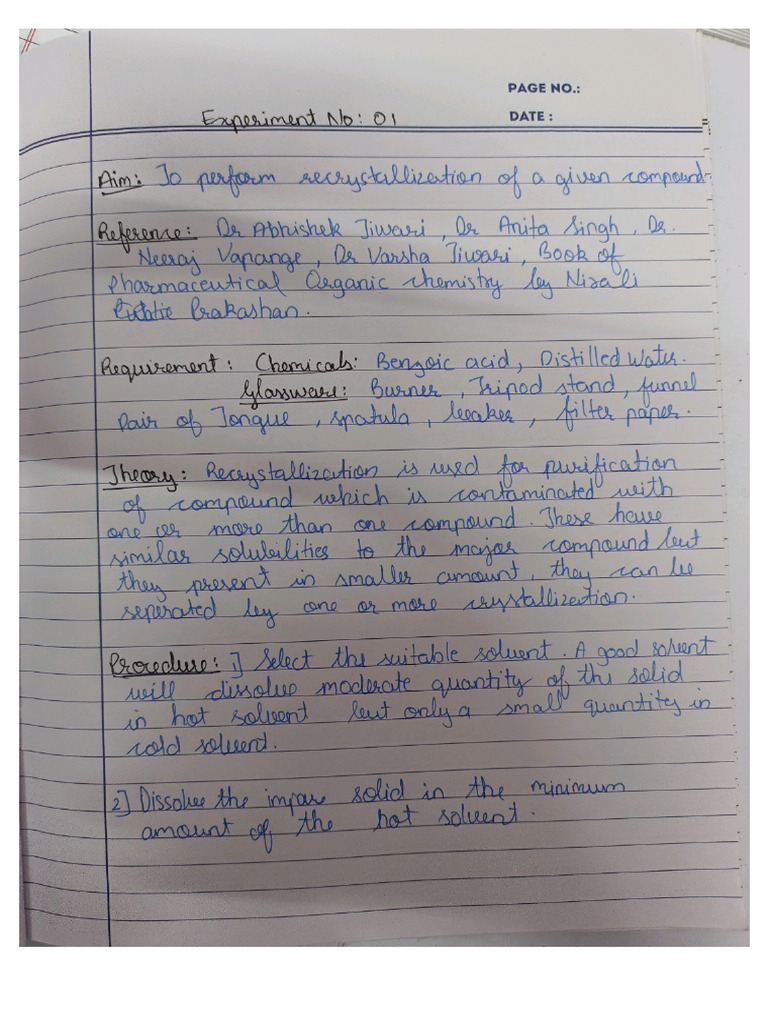 PAGE NO.:
DATE :
Experiment No: 01
Aim: To perform recrystallization of a given compound
Reference: Dr Abhishek Tiwari, Dr Anita Singh, Dr.
Neeraj Vapange, Dr Varsha Tiwari, Book of
Pharmaceutical Organic chemistry by Nirali
Prakashan.
Requirement: Chemicals: Benzoic acid, Distilled Water.
Glassware: Burner, Tripod stand, funnel
Pair of Tongue, spatula, beaker, filter paper.
Theory: Recrystallization is used for purification
of compound which is contaminated with
one or more than one compound. These have
similar solubilities to the major compound but
they present in smaller amount, they can be
seperated by one or more crystallization.
Procedure: 1] Select the suitable solvent. A good solvent
will dissolve moderate quantity of the solid
in hot solvent but only a small quantity in
cold solvent.
2] Dissolve the impure solid in the minimum
amount of the hot solvent.